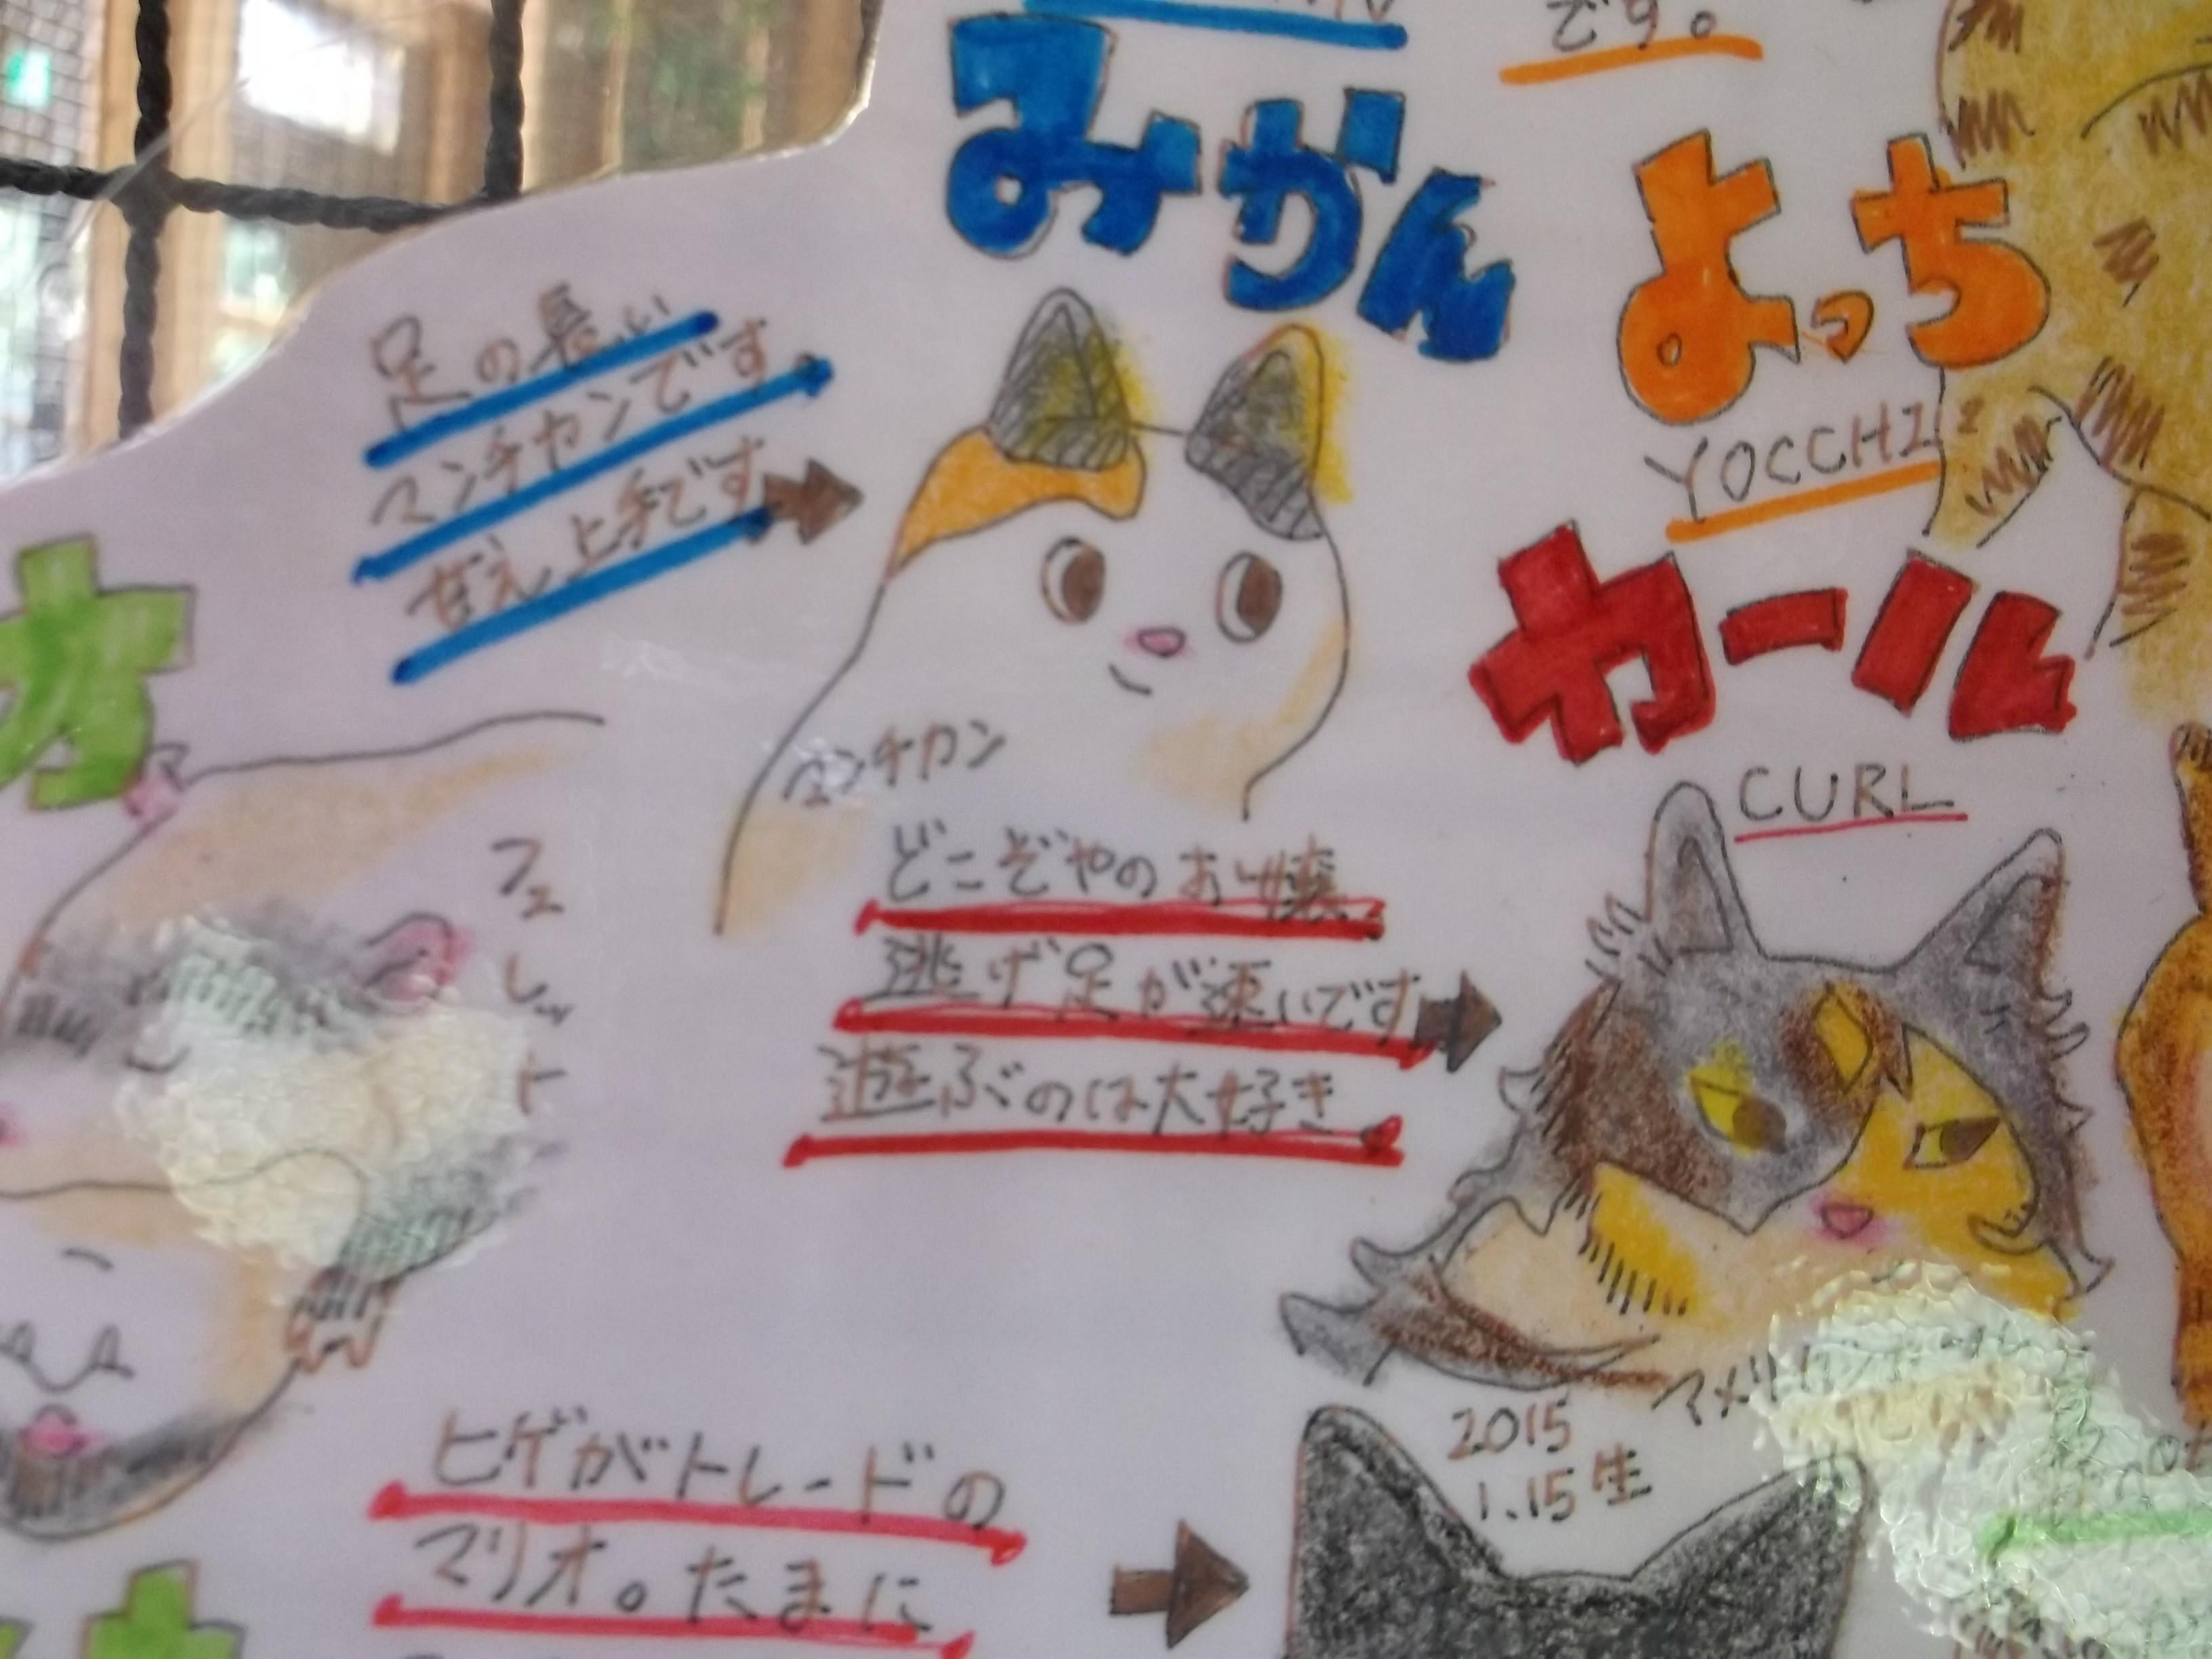 です。
みかん
よっち
YOCCHI
足の長い
マンチカンです
甘え上手です
カール
CURL
マンチカン
どこぞやのお嬢
逃げ足が速いです
遊ぶのは大好き
フェレット
アメリカン
2015
1.15生
ヒゲがトレードの
マリオ。たまに